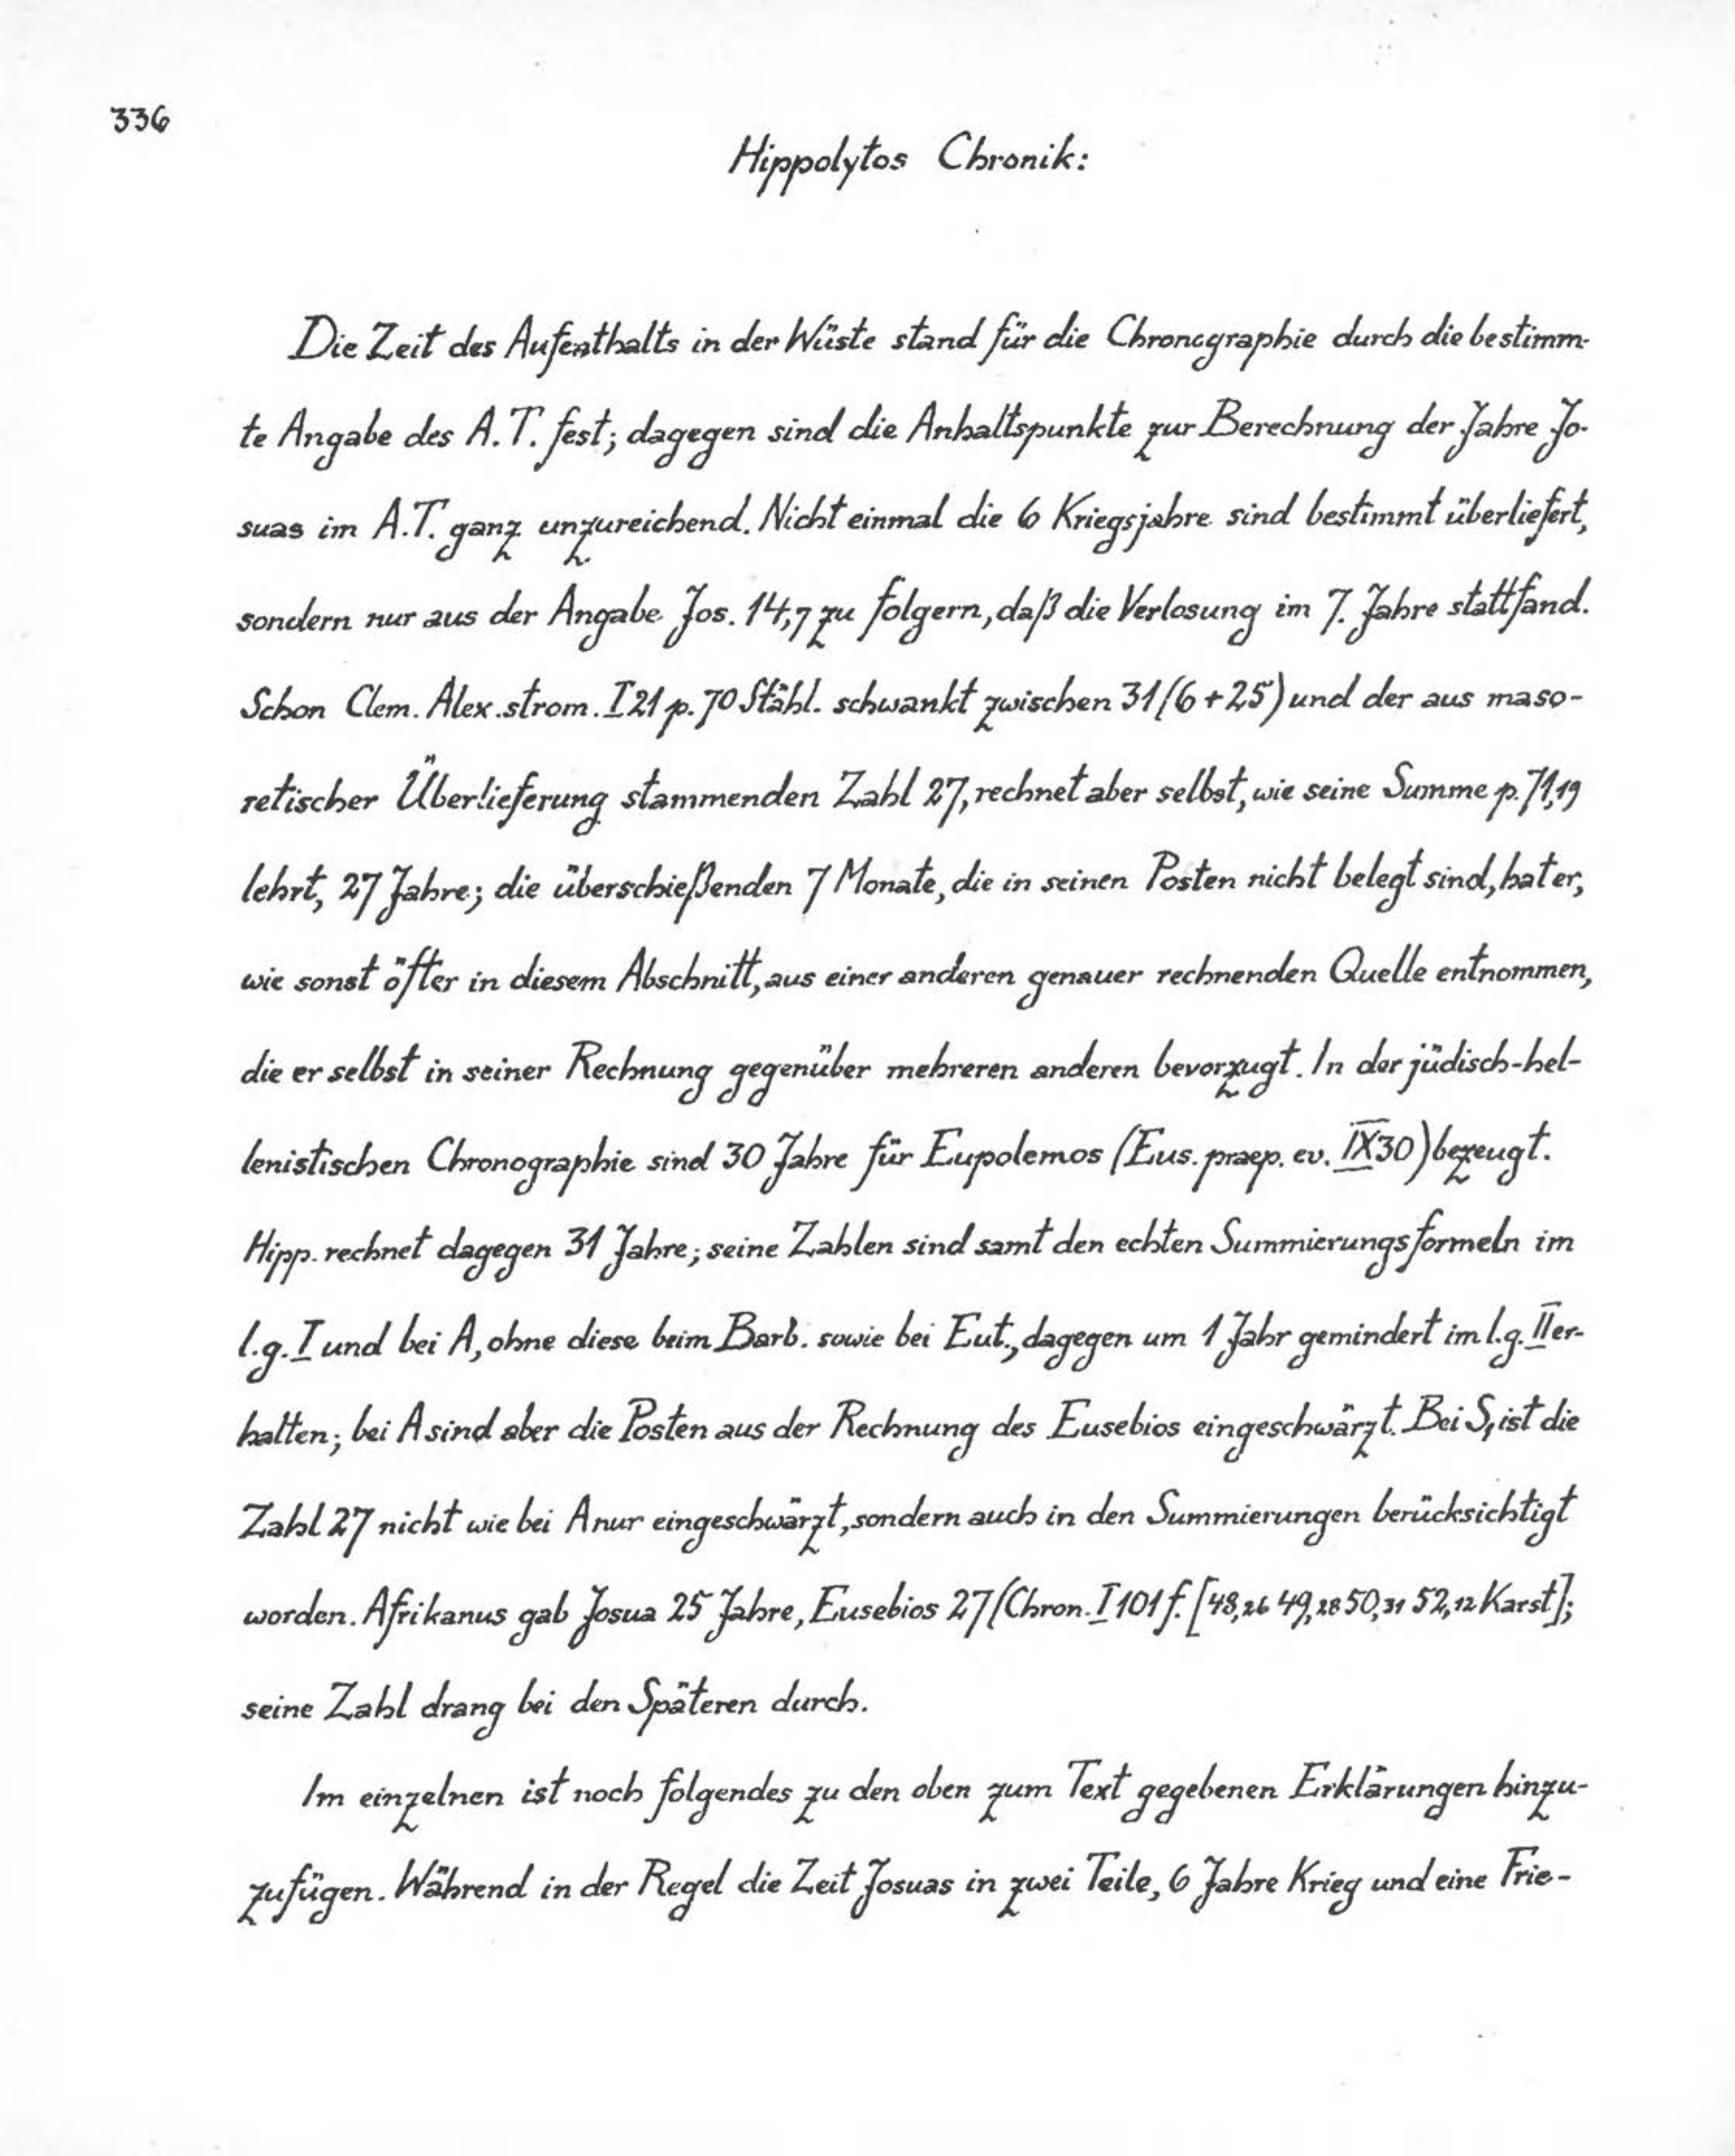 336
Hippolytos Chronik:
Die Zeit des Aufenthalts in der Wüste stand für die Chronographie durch die bestimm-
te Angabe des A.T. fest; dagegen sind die Anhaltspunkte zur Berechnung der Jahre Jo-
suas im A.T. ganz unzureichend. Nicht einmal die 6 Kriegsjahre sind bestimmt überliefert,
sondern nur aus der Angabe Jos. 14,7 zu folgern, daß die Verlosung im 7. Jahre stattfand.
Schon Clem. Alex. strom. I 21 p. 70 Stähl. schwankt zwischen 31 (6 + 25) und der aus maso-
retischer Überlieferung stammenden Zahl 27, rechnet aber selbst, wie seine Summe p. 71,19
lehrt, 27 Jahre; die überschießenden 7 Monate, die in seinen Posten nicht belegt sind, hat er,
wie sonst öfter in diesem Abschnitt, aus einer anderen genauer rechnenden Quelle entnommen,
die er selbst in seiner Rechnung gegenüber mehreren anderen bevorzugt. In der jüdisch-hel-
lenistischen Chronographie sind 30 Jahre für Eupolemos (Eus. praep. ev. IX 30) bezeugt.
Hipp. rechnet dagegen 31 Jahre; seine Zahlen sind samt den echten Summierungsformeln im
l.g. I und bei A, ohne diese beim Barb. sowie bei Eut., dagegen um 1 Jahr gemindert im l.g. II er-
halten; bei A sind aber die Posten aus der Rechnung des Eusebios eingeschwärzt. Bei S, ist die
Zahl 27 nicht wie bei A nur eingeschwärzt, sondern auch in den Summierungen berücksichtigt
worden. Afrikanus gab Josua 25 Jahre, Eusebios 27 (Chron. I 101 f. [48,26 49,28 50,31 52,12 Karst];
seine Zahl drang bei den Späteren durch.
Im einzelnen ist noch folgendes zu den oben zum Text gegebenen Erklärungen hinzu-
zufügen. Während in der Regel die Zeit Josuas in zwei Teile, 6 Jahre Krieg und eine Frie-